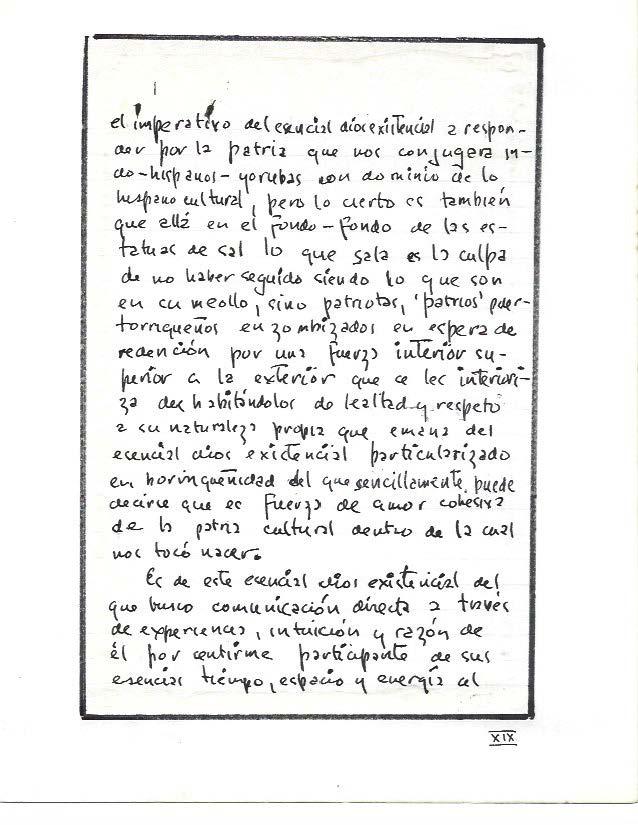 el imperativo del esencial dios existencial a respon-
der por la patria que nos conjugara in-
do-hispanos-yorubas con dominio de lo
hispano cultural, pero lo cierto es también
que allá en el fondo-fondo de las es-
tatuas de sal lo que sala es la culpa
de no haber seguido siendo lo que son
en su meollo, sino patriotas, 'patrios' puer-
torriqueños enzombizados en espera de
redención por una fuerza interior su-
perior a la exterior que se les interiori-
za deshabitándolos de lealtad y respeto
a su naturaleza propia que emana del
esencial dios existencial particularizado
en borinqueñidad del que sencillamente puede
decirse que es fuerza de amor cohesiva
de la patria cultural dentro de la cual
nos tocó nacer.
Es de este esencial dios existencial del
que busco comunicación directa a través
de experiencia, intuición y razón de
él por sentirme participante de sus
esencias tiempo, espacio y energía al
XIX